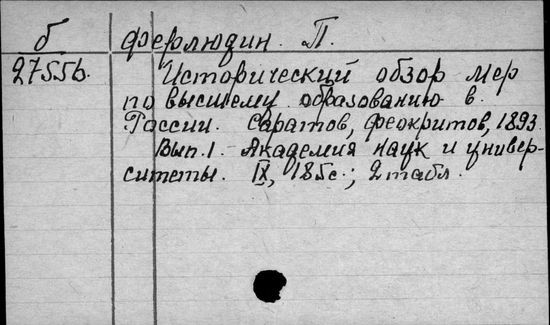 б Ферлюдин. П.
27556. Исторический обзор мер
по высшему образованию в
России. Саратов, Феокритов, 1893.
Вып. 1. Академия наук и универ-
ситеты. IX, 185с.; 2 табл.